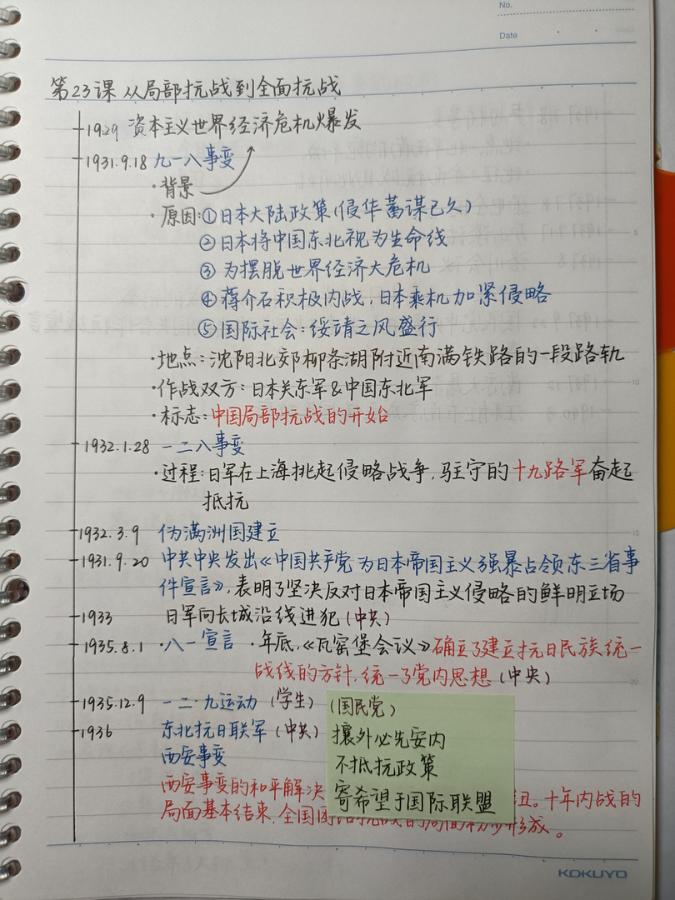 No.
Date
第23课 从局部抗战到全面抗战
1929 资本主义世界经济危机爆发
1931.9.18 九一八事变
·背景
·原因:①日本大陆政策(侵华蓄谋已久)
②日本将中国东北视为生命线
③为摆脱世界经济大危机
④蒋介石积极内战,日本乘机加紧侵略
⑤国际社会:绥靖之风盛行
·地点:沈阳北郊柳条湖附近南满铁路的一段路轨
·作战双方:日本关东军&中国东北军
·标志:中国局部抗战的开始
1932.1.28 一二八事变
·过程:日军在上海挑起侵略战争,驻守的十九路军奋起
抵抗
1932.3.9 伪满洲国建立
1931.9.20 中共中央发出《中国共产党为日本帝国主义强暴占领东三省事
件宣言》,表明了坚决反对日本帝国主义侵略的鲜明立场
1933 日军向长城沿线进犯(中共)
1935.8.1 ·八一宣言 ·年底,《瓦窑堡会议》确立了建立抗日民族统一
战线的方针,统一了党内思想(中央)
1935.12.9 一二·九运动(学生)
1936 东北抗日联军(中共)
西安事变
(国民党)
攘外必先安内
不抵抗政策
寄希望于国际联盟
西安事变的和平解决 。十年内战的
局面基本结束,全国
KOKUYO